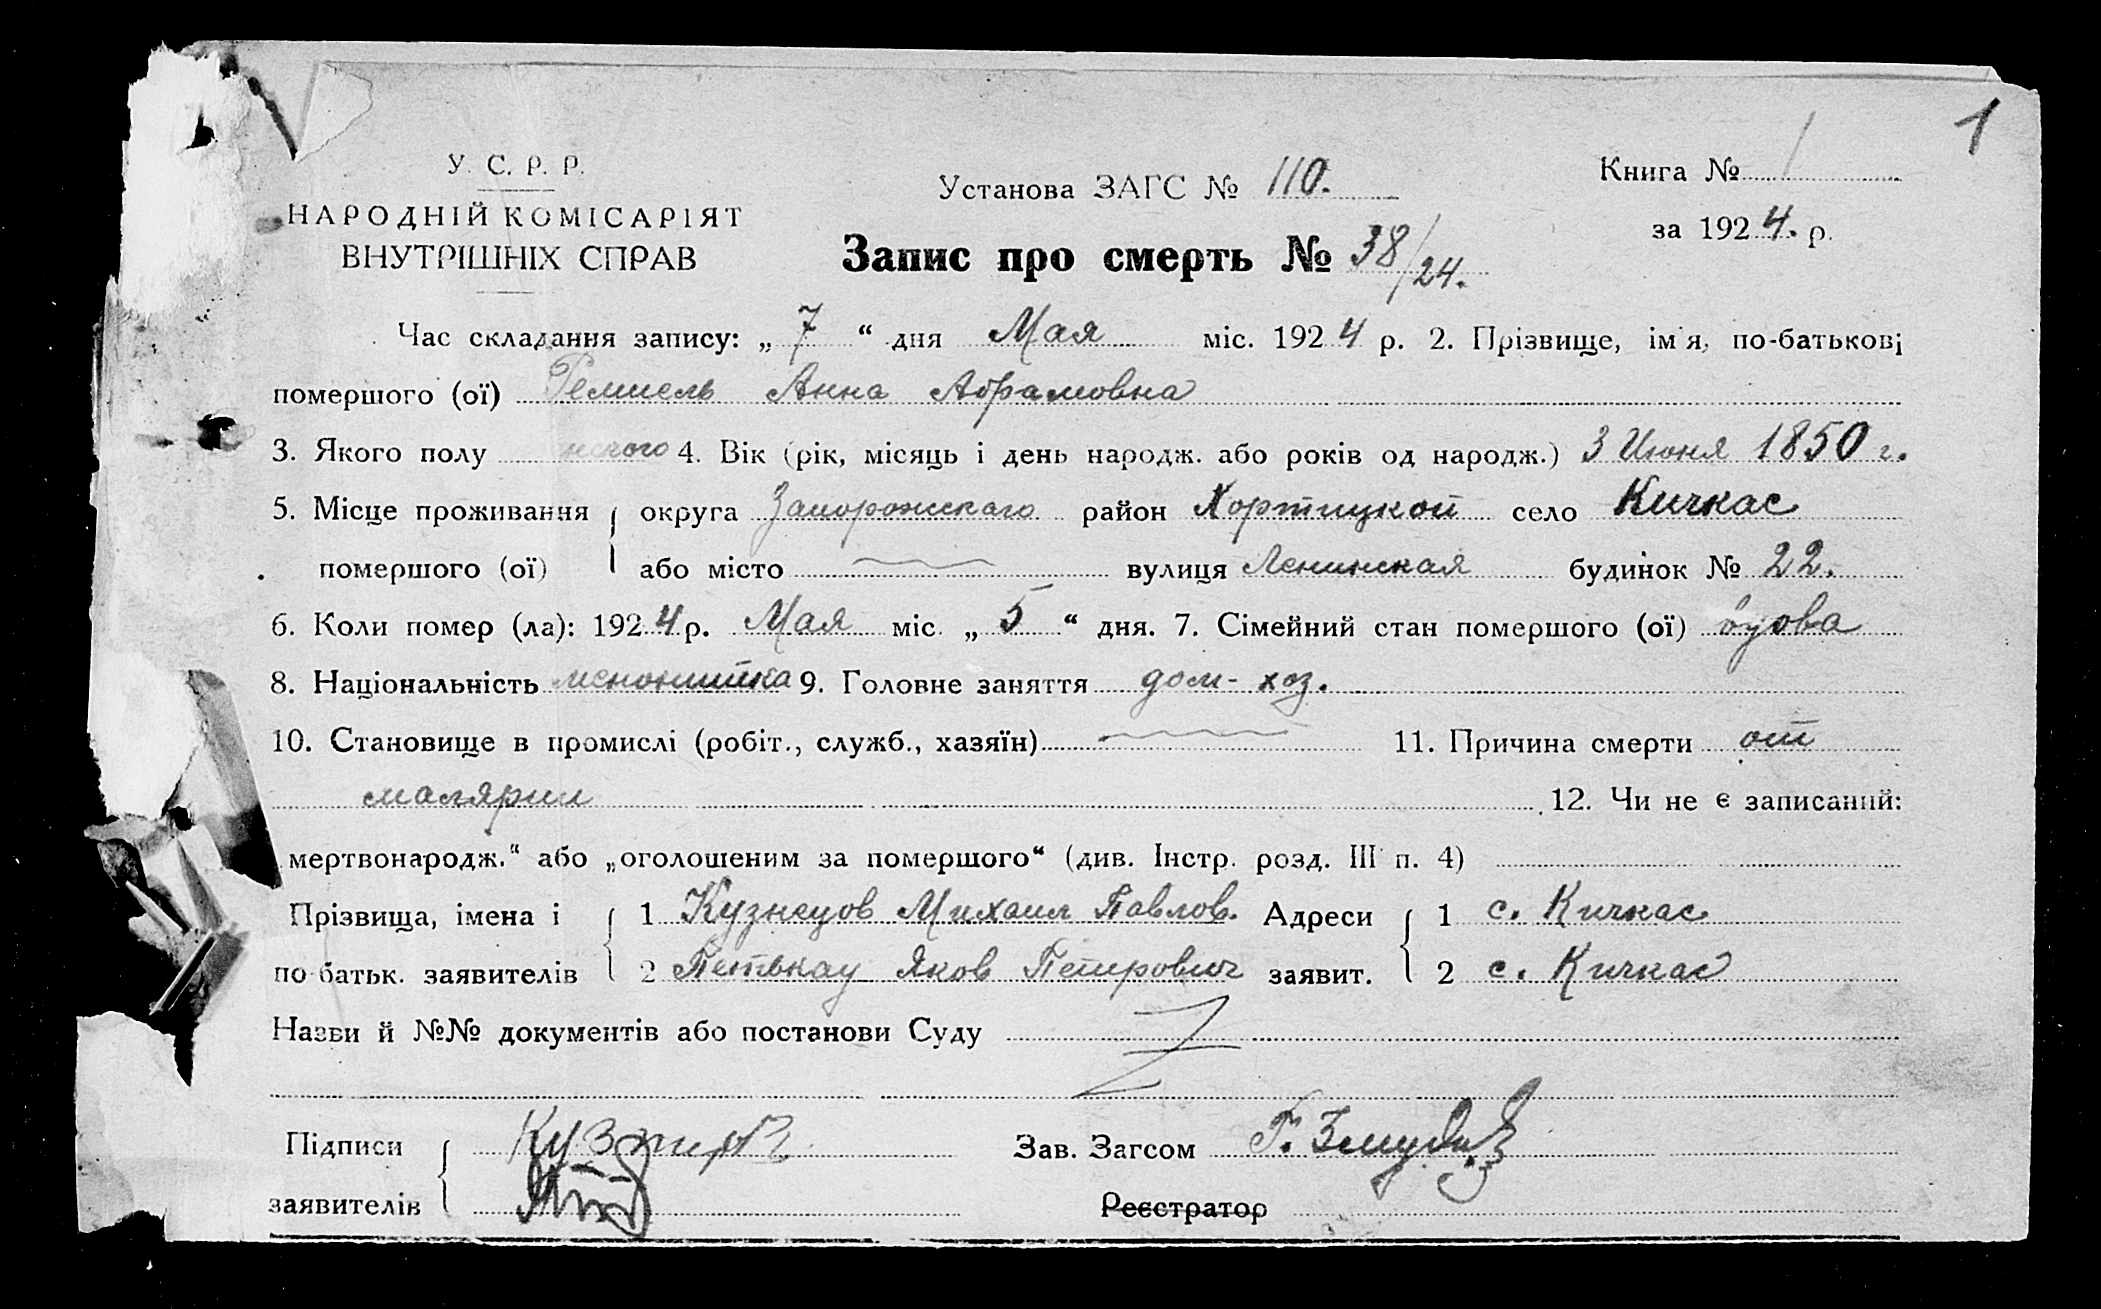 1
У. С. Р. Р.
НАРОДНІЙ КОМІСАРІЯТ
ВНУТРІШНІХ СПРАВ
Установа ЗАГС № 110.
Книга № 1
за 1924. р.
Запис про смерть № 38/24.
Час складання запису: „ 7 “ дня Мая міс. 1924 р. 2. Прізвище, ім'я, по-батькові
помершого (ої) Ремпель Анна Абрамовна
3. Якого полу 4. Вік (рік, місяць і день народж. або років од народж.) 3 Июня 1850 г.
5. Місце проживання округа Запорожскаго район Хортицкой село Кичкас
помершого (ої) або місто вулиця Ленинская будинок № 22.
6. Коли помер (ла): 1924 р. Мая міс. „ 5 “ дня. 7. Сімейний стан помершого (ої) вдова
8. Національність менонитка 9. Головне заняття дом-хоз.
10. Становище в промислі (робіт., служб., хазяїн) 11. Причина смерти от
малярии 12. Чи не є записаний:
мертвонародж.“ або „оголошеним за помершого“ (див. Інстр. розд. III п. 4)
Прізвища, імена і 1 Кузнецов Михаил Павлов. Адреси 1 с. Кичкас
по батьк. заявителів 2 Петькау Яков Петрович заявит. 2 с. Кичкас
Назви й №№ документів або постанови Суду
Підписи Зав. Загсом
заявителів Реєстратор